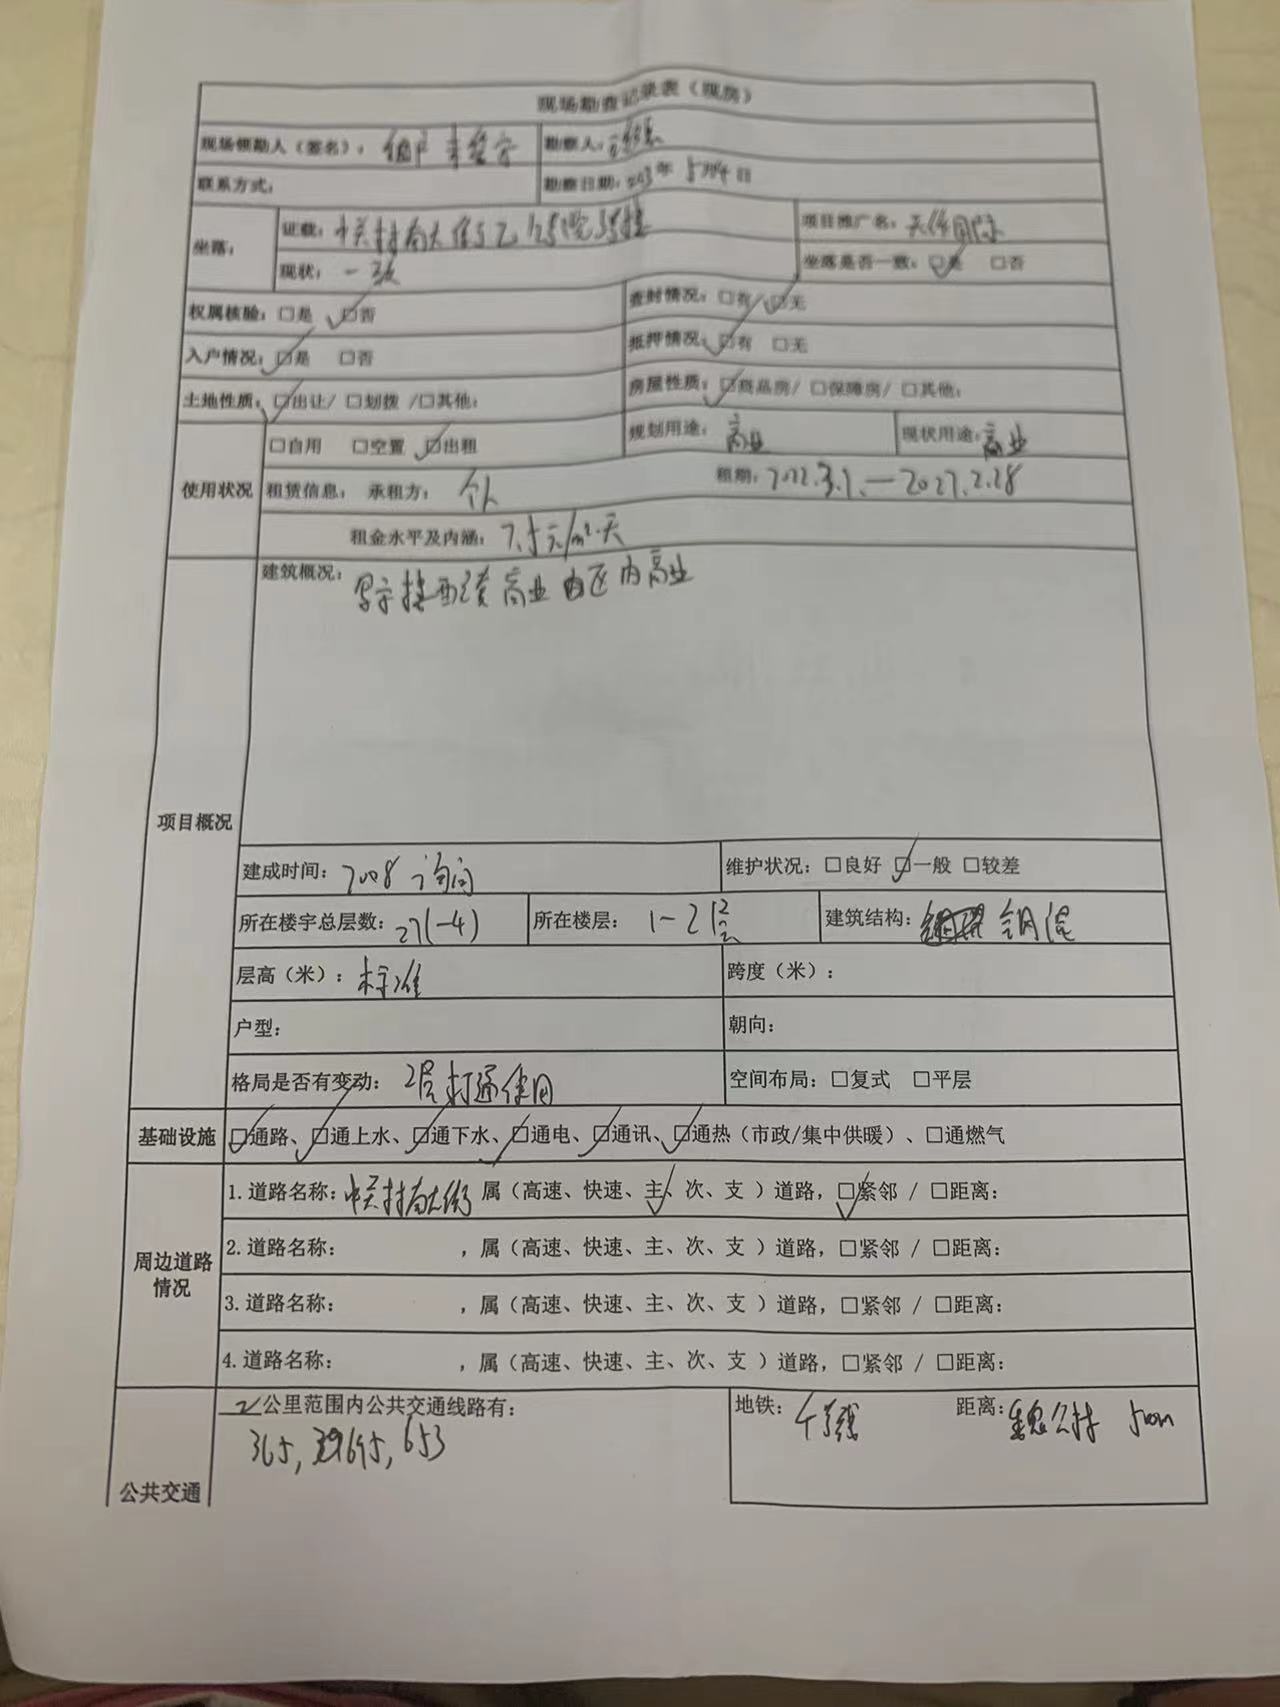 现场勘查记录表（现房）
现场领勘人（签名）： 租户未签字 勘察人：
联系方式： 勘察日期：2023年5月 日
坐落： 证载：中关村南大街乙12号院 号楼 项目推广名：天作国际
现状：一致 坐落是否一致：☑是 □否
权属核验：□是 ☑否 查封情况：□有/☑无
入户情况：☑是 □否 抵押情况：☑有 □无
土地性质：☑出让/ □划拨 /□其他： 房屋性质：☑商品房/ □保障房/ □其他：
使用状况 □自用 □空置 ☑出租 规划用途：商业 现状用途：商业
租赁信息： 承租方：个人 租期：2022.3.1.—2027.2.28
租金水平及内涵：7.5元/m²·天
项目概况 建筑概况：写字楼配套商业 内商业
建成时间：2008 询问 维护状况：□良好 ☑一般 □较差
所在楼宇总层数：27(-4) 所在楼层：1-2层 建筑结构：钢混
层高（米）：标准 跨度（米）：
户型： 朝向：
格局是否有变动：2层打通使用 空间布局：□复式 □平层
基础设施 ☑通路、☑通上水、☑通下水、☑通电、☑通讯、☑通热（市政/集中供暖）、□通燃气
周边道路情况 1.道路名称：中关村南大街 属（高速、快速、主、次、支 ）道路，☑紧邻 / □距离：
2.道路名称： ，属（高速、快速、主、次、支 ）道路，□紧邻 / □距离：
3.道路名称： ，属（高速、快速、主、次、支 ）道路，□紧邻 / □距离：
4.道路名称： ，属（高速、快速、主、次、支 ）道路，□紧邻 / □距离：
公共交通 2公里范围内公共交通线路有： 地铁：4号线 距离：魏公村 500m
365, 695, 653